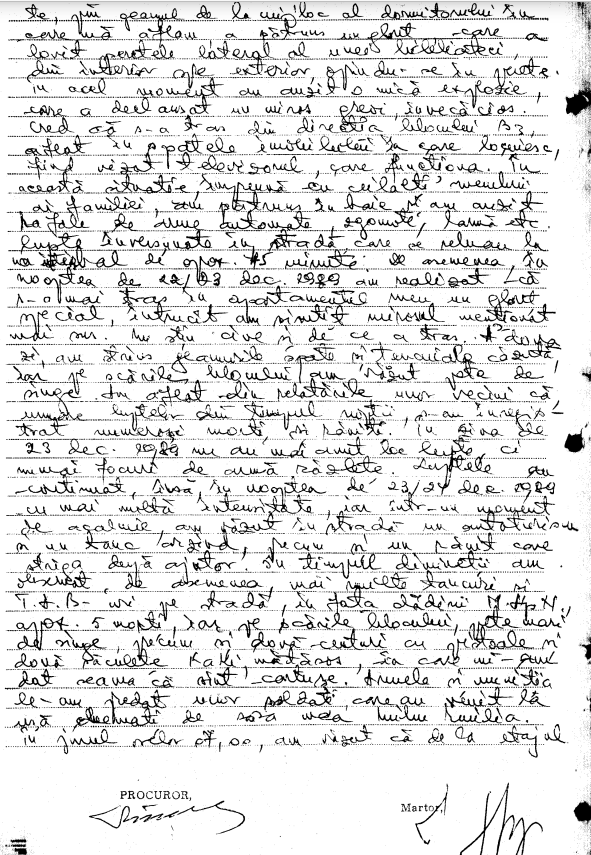 te, prin geamul de la mijloc al dormitorului în
care mă aflam a pătruns un glonț care a
lovit peretele lateral al unei biblioteci,
din interior spre exterior, oprindu-se în perete.
În acel moment am auzit o mică explozie,
care a declanșat un miros greoi, înecăcios.
Cred că s-a tras din direcția blocului B3,
aflat în spatele imobilului în care locuiesc,
fiind văzut televizorul, care funcționa. În
această situație, împreună cu ceilalți membri
ai familiei, am pătruns în baie și am auzit
rafale de arme automate, zgomote, larmă etc.
lupte înverșunate în stradă care se reluau la
un interval de aprox. 15 minute. De asemenea în
noaptea de 22/23 dec. 1989 am realizat că
s-a mai tras în apartamentul meu un glonț
special, întrucît am simțit mirosul menționat
mai sus. Nu știu cine și de ce a tras. A doua
zi, am văzut geamurile sparte și tencuiala căzută
iar pe scările blocului am văzut pete de
sînge. Am aflat din relatările unor vecini că
urmare luptelor din timpul nopții, s-au înregis-
trat numeroși morți și răniți. În ziua de
23 dec. 1989 nu au mai avut loc lupte, ci
numai focuri de armă răzlețe. Luptele au
continuat, însă, în noaptea de 23/24 dec. 1989
cu mai multă intensitate, iar într-un moment
de acalmie am văzut în stradă un autoturism
și un tanc arzînd, precum și un rănit care
striga după ajutor. În timpul dimineții am
observat, de asemenea, mai multe tancuri și
T.A.B-uri pe stradă, în fața clădirii M.Ap.N.,
aprox. 5 morți, iar pe scările blocului, pete mari
de sînge, precum și două centuri cu pistoale și
două săculețe kaki mătăsos, în care mi-am
dat seama că sînt cartușe. Armele și muniția
le-am predat unor soldați care au venit la
ușă chemați de sora mea Emilia.
În jurul orelor 07,00, am văzut că de la etajul
PROCUROR,
Martor,